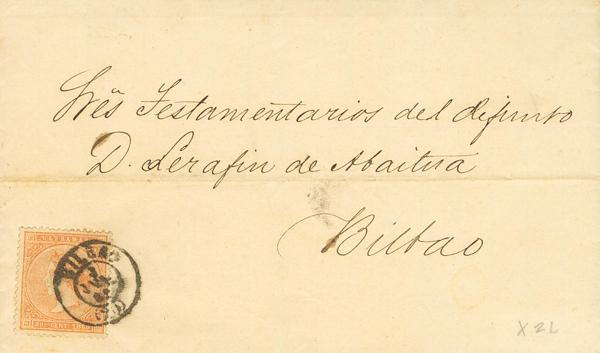 Sres Testamentarios del difunto
D. Serafin de Abaitua
Bilbao
ULTRAMAR
BILBAO
X 2L